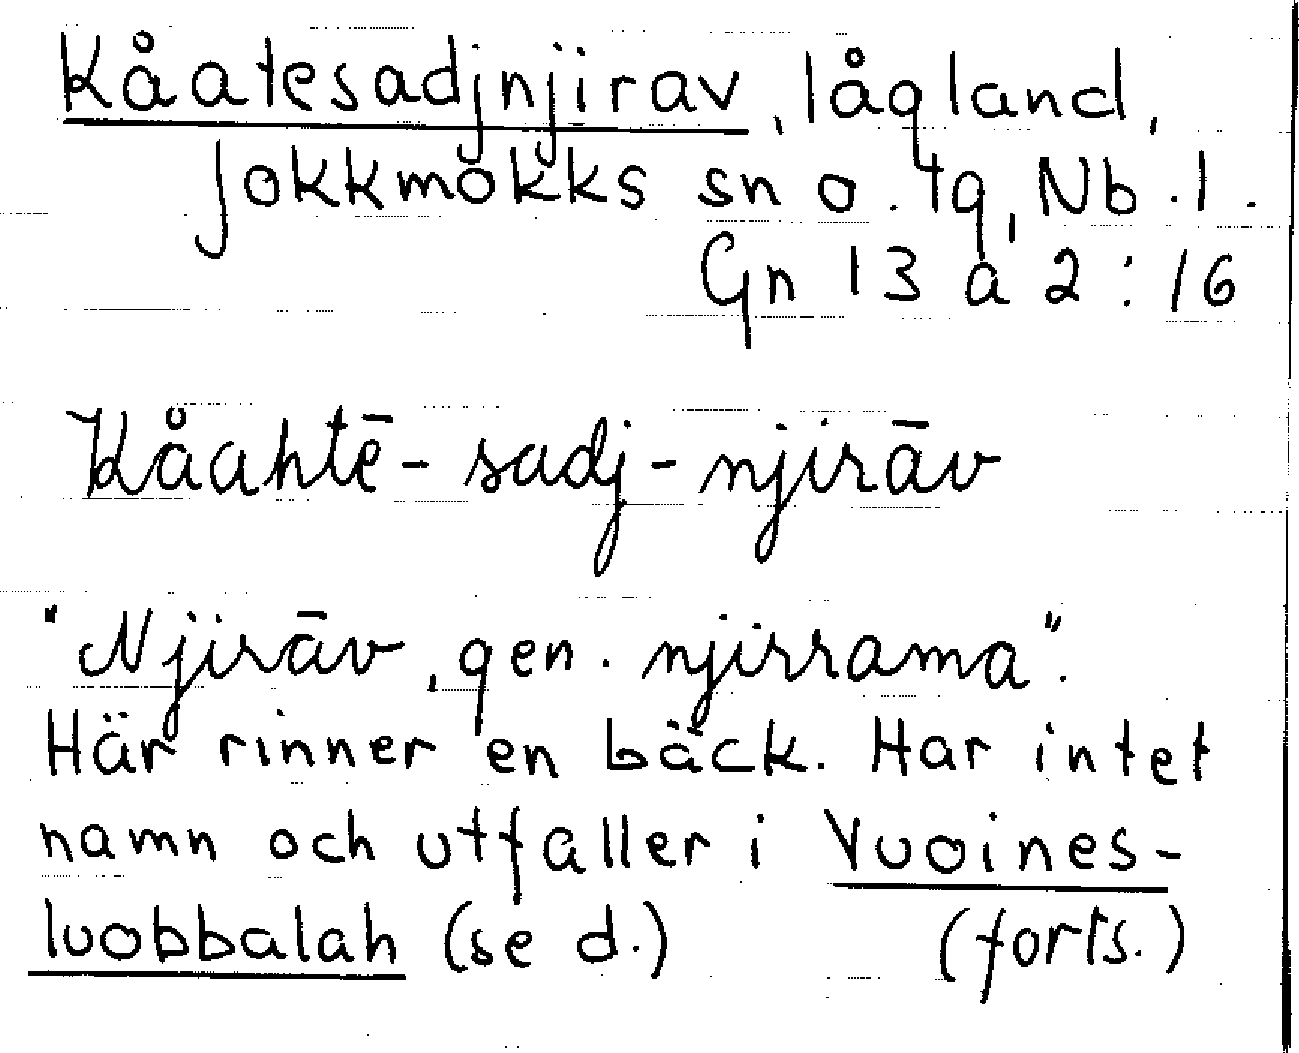 Kåatesadjnjirav, lågland,
Jokkmokks sn o. tg, Nb. l.
Gn 13 a 2:16
Kåahtē-sadj-njirāv
"Njirāv, gen. njirrama".
Här rinner en bäck. Har intet
namn och utfaller i Vuoines-
luobbalah (se d.) (forts.)